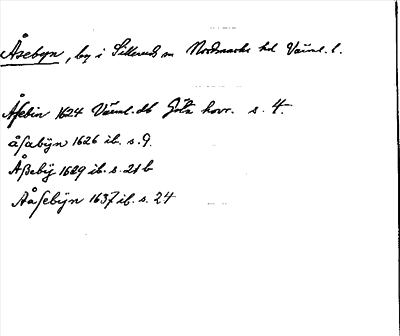 Åsebyn, by i Silleruds sn Nordmarks hd Värml. l.
Åsebin 1624 Värml. db Göta hovr. s. 4.
åsabÿn 1626 ib. s. 9.
Åßebÿ 1629 ib. s. 21 b
Aåsebÿn 1637 ib. s. 24